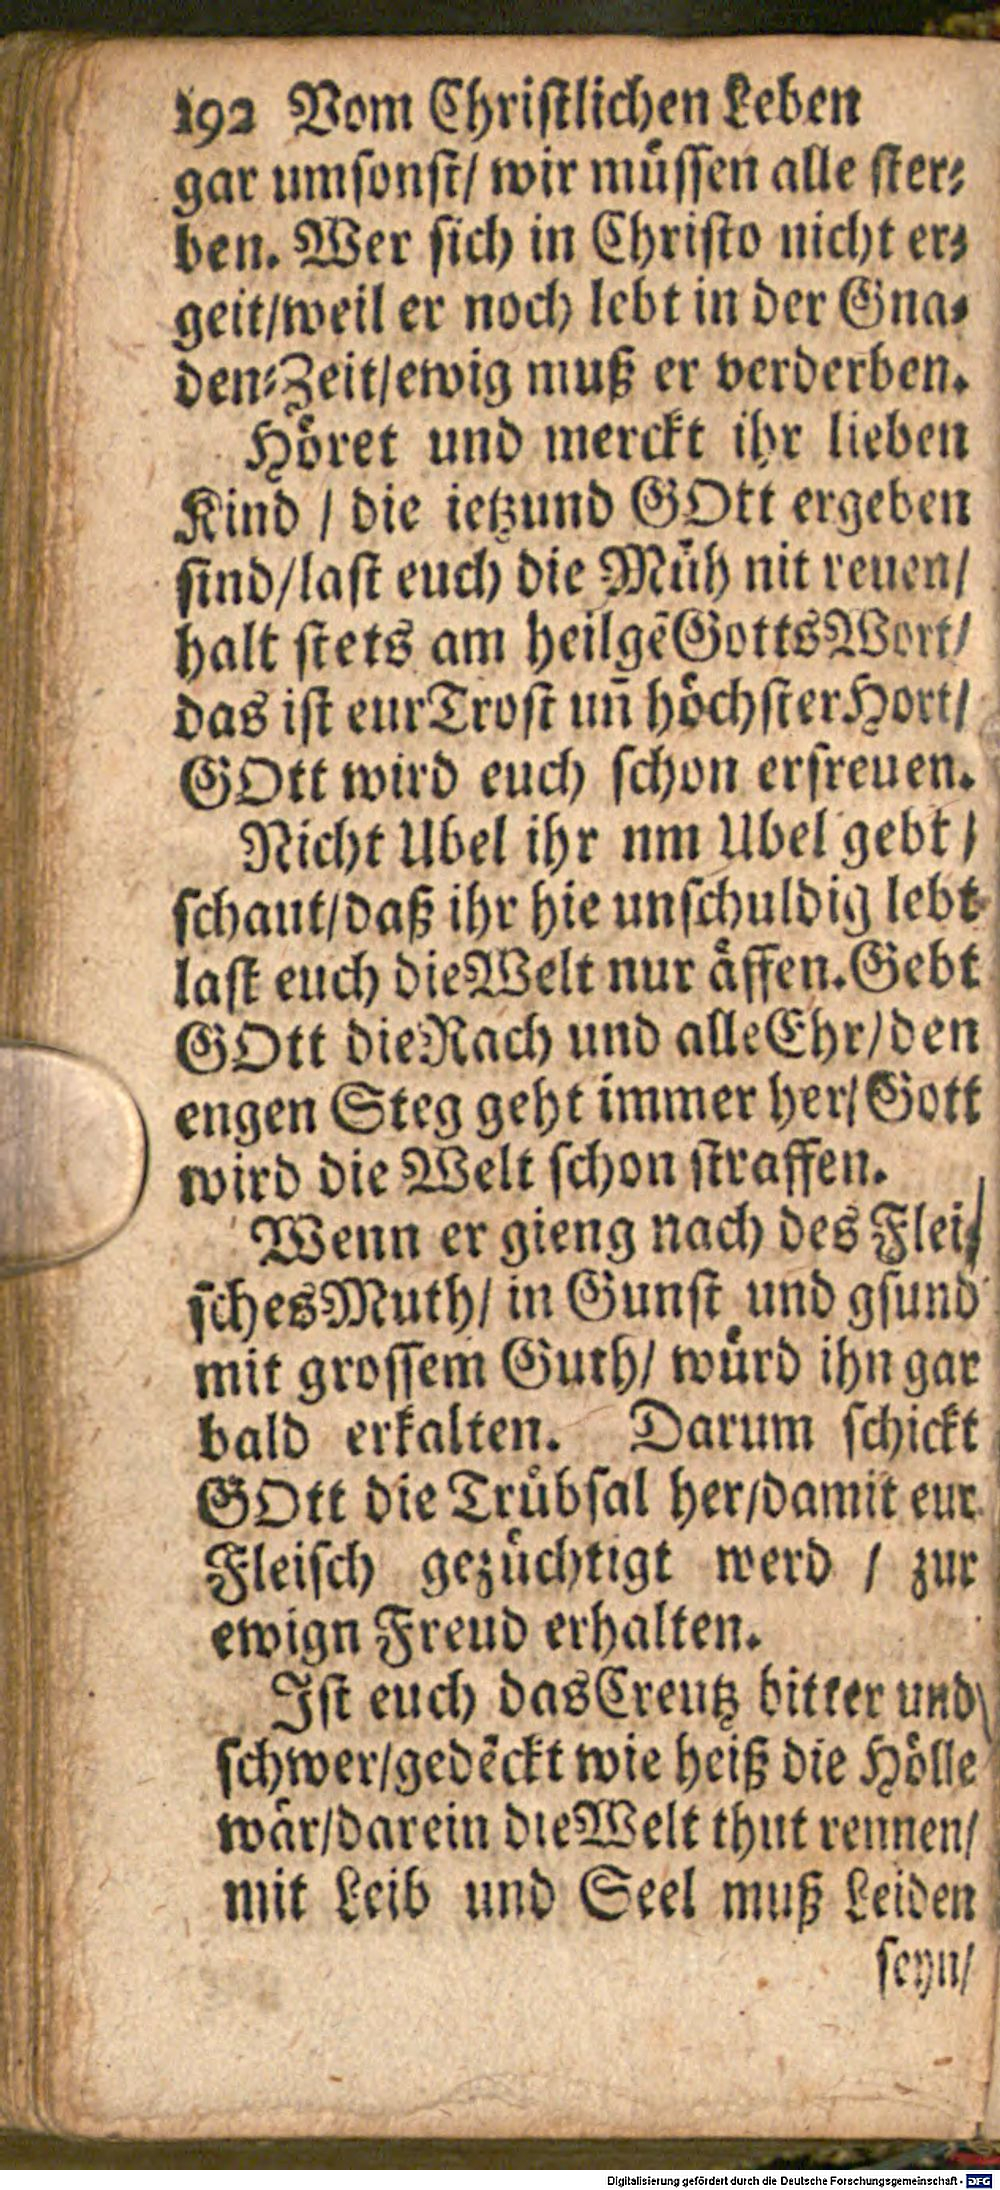 192 Vom Christlichen Leben
gar umsonst/ wir müssen alle ster⸗
ben. Wer sich in Christo nicht er⸗
geit/weil er noch lebt in der Gna⸗
den⸗Zeit/ewig muß er verderben.
Höret und merckt ihr lieben
Kind / die ietzund GOtt ergeben
sind/last euch die Müh nit reuen/
halt stets am heilgē GottsWort/
das ist eur Trost uñ höchster Hort/
GOtt wird euch schon erfreuen.
Nicht Ubel ihr nm Ubel gebt/
schaut/daß ihr hie unschuldig lebt
last euch die Welt nur äffen. Gebt
GOtt die Rach und alle Ehr/den
engen Steg geht immer her/ Gott
wird die Welt schon straffen.
Wenn er gieng nach des Flei⸗
sches Muth/ in Gunst und gsund
mit grossem Guth/ würd ihn gar
bald erkalten. Darum schickt
GOtt die Trübsal her/damit eur
Fleisch gezüchtigt werd / zur
ewign Freud erhalten.
Ist euch das Creutz bitter und
schwer/gedēckt wie heiß die Hölle
wär/darein die Welt thut rennen/
mit Leib und Seel muß Leiden
seyn/
Digitalisierung gefördert durch die Deutsche Forschungsgemeinschaft - DFG